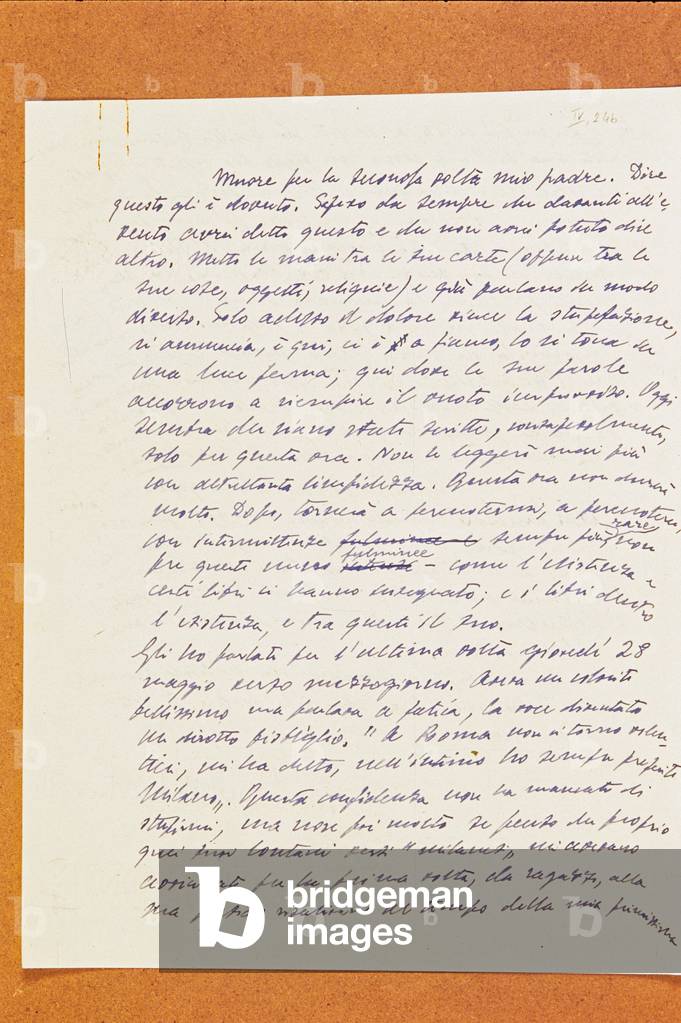 IV, 246
Muore per la seconda volta mio padre. Dire
questo gli è dovuto. Sapevo da sempre che davanti all'e-
vento avrei detto questo e che non avrei potuto dire
altro. Metto le mani tra le sue carte (oppure tra le
sue cose, oggetti, reliquie) e già parlano in modo
diverso. Solo adesso il dolore vince la stupefazione,
si annuncia, è qui, ci è a fianco, lo si tocca in
una luce ferma; qui dove le sue parole
accorrono a riempire il vuoto improvviso. Oggi
sembra che siano state scritte, consapevolmente,
solo per questa ora. Non le leggerò mai più
con altrettanta limpidezza. Questa ora non durerà
molto. Dopo, tornerà a permeterci, a
con intermittenze fulminee e sempre più rare non
per questo meno fulminee – come l'esistenza e
certi libri ci hanno insegnato; e i libri dentro
l'esistenza, e tra questi il suo.
Gli ho parlato per l'ultima volta giovedì 28
maggio verso mezzogiorno. Aveva un colorito
bellissimo ma parlava a fatica, la voce diventata
un dirotto bisbiglio. "A Roma non ci torno volen-
tieri, mi ha detto, nell'intimo ho sempre preferito
Milano". Questa confidenza non ha mancato di
stupirmi, ma non poi molto se penso che proprio
quei suoi lontani versi "milanesi" mi avevano
avvicinato per la prima volta, da ragazzo, alla
sua poesia della mia primissima
bridgeman
images